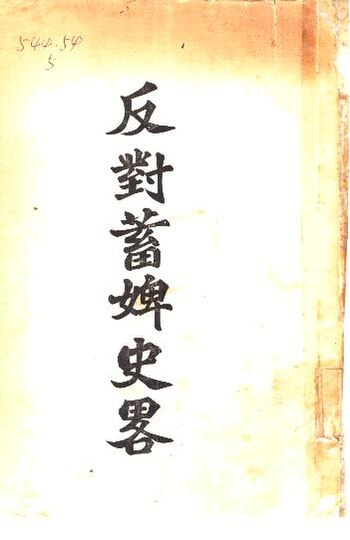 544.54
5
反對蓄婢史畧